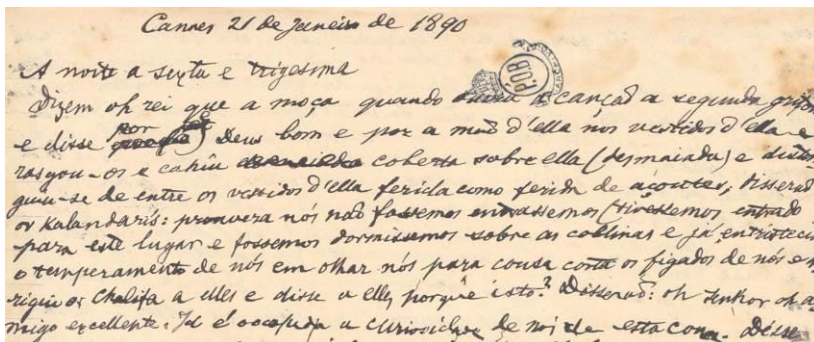 Cannes 21 de Janeiro de 1890
A noite a sexta e trigesima
Dizem oh rei que a moça quando ouvio a canção a segunda gritou
e disse por Deus bom e poz a mão d'ella nos vestidos d'ella e
rasgou-os e cahiu coberta sobre ella (desmaiada) e distin
guiu-se de entre os vestidos d'ella ferida como ferida de açoutes, disserão
os Kalandaris: prouvera nós não fossemos entrassemos (tivessemos entrado
para este lugar e fossemos dormissemos sobre as collinas e já entristeceu
o temperamento de nós em olhar nós para cousa corta os figados de nós e
os Chalifa a elles e disse a elles porquê isto? Disserão: oh senhor oh a
migo excellente. Já é occupada a curiosidade de nós de esta cousa. Disse
PÚB